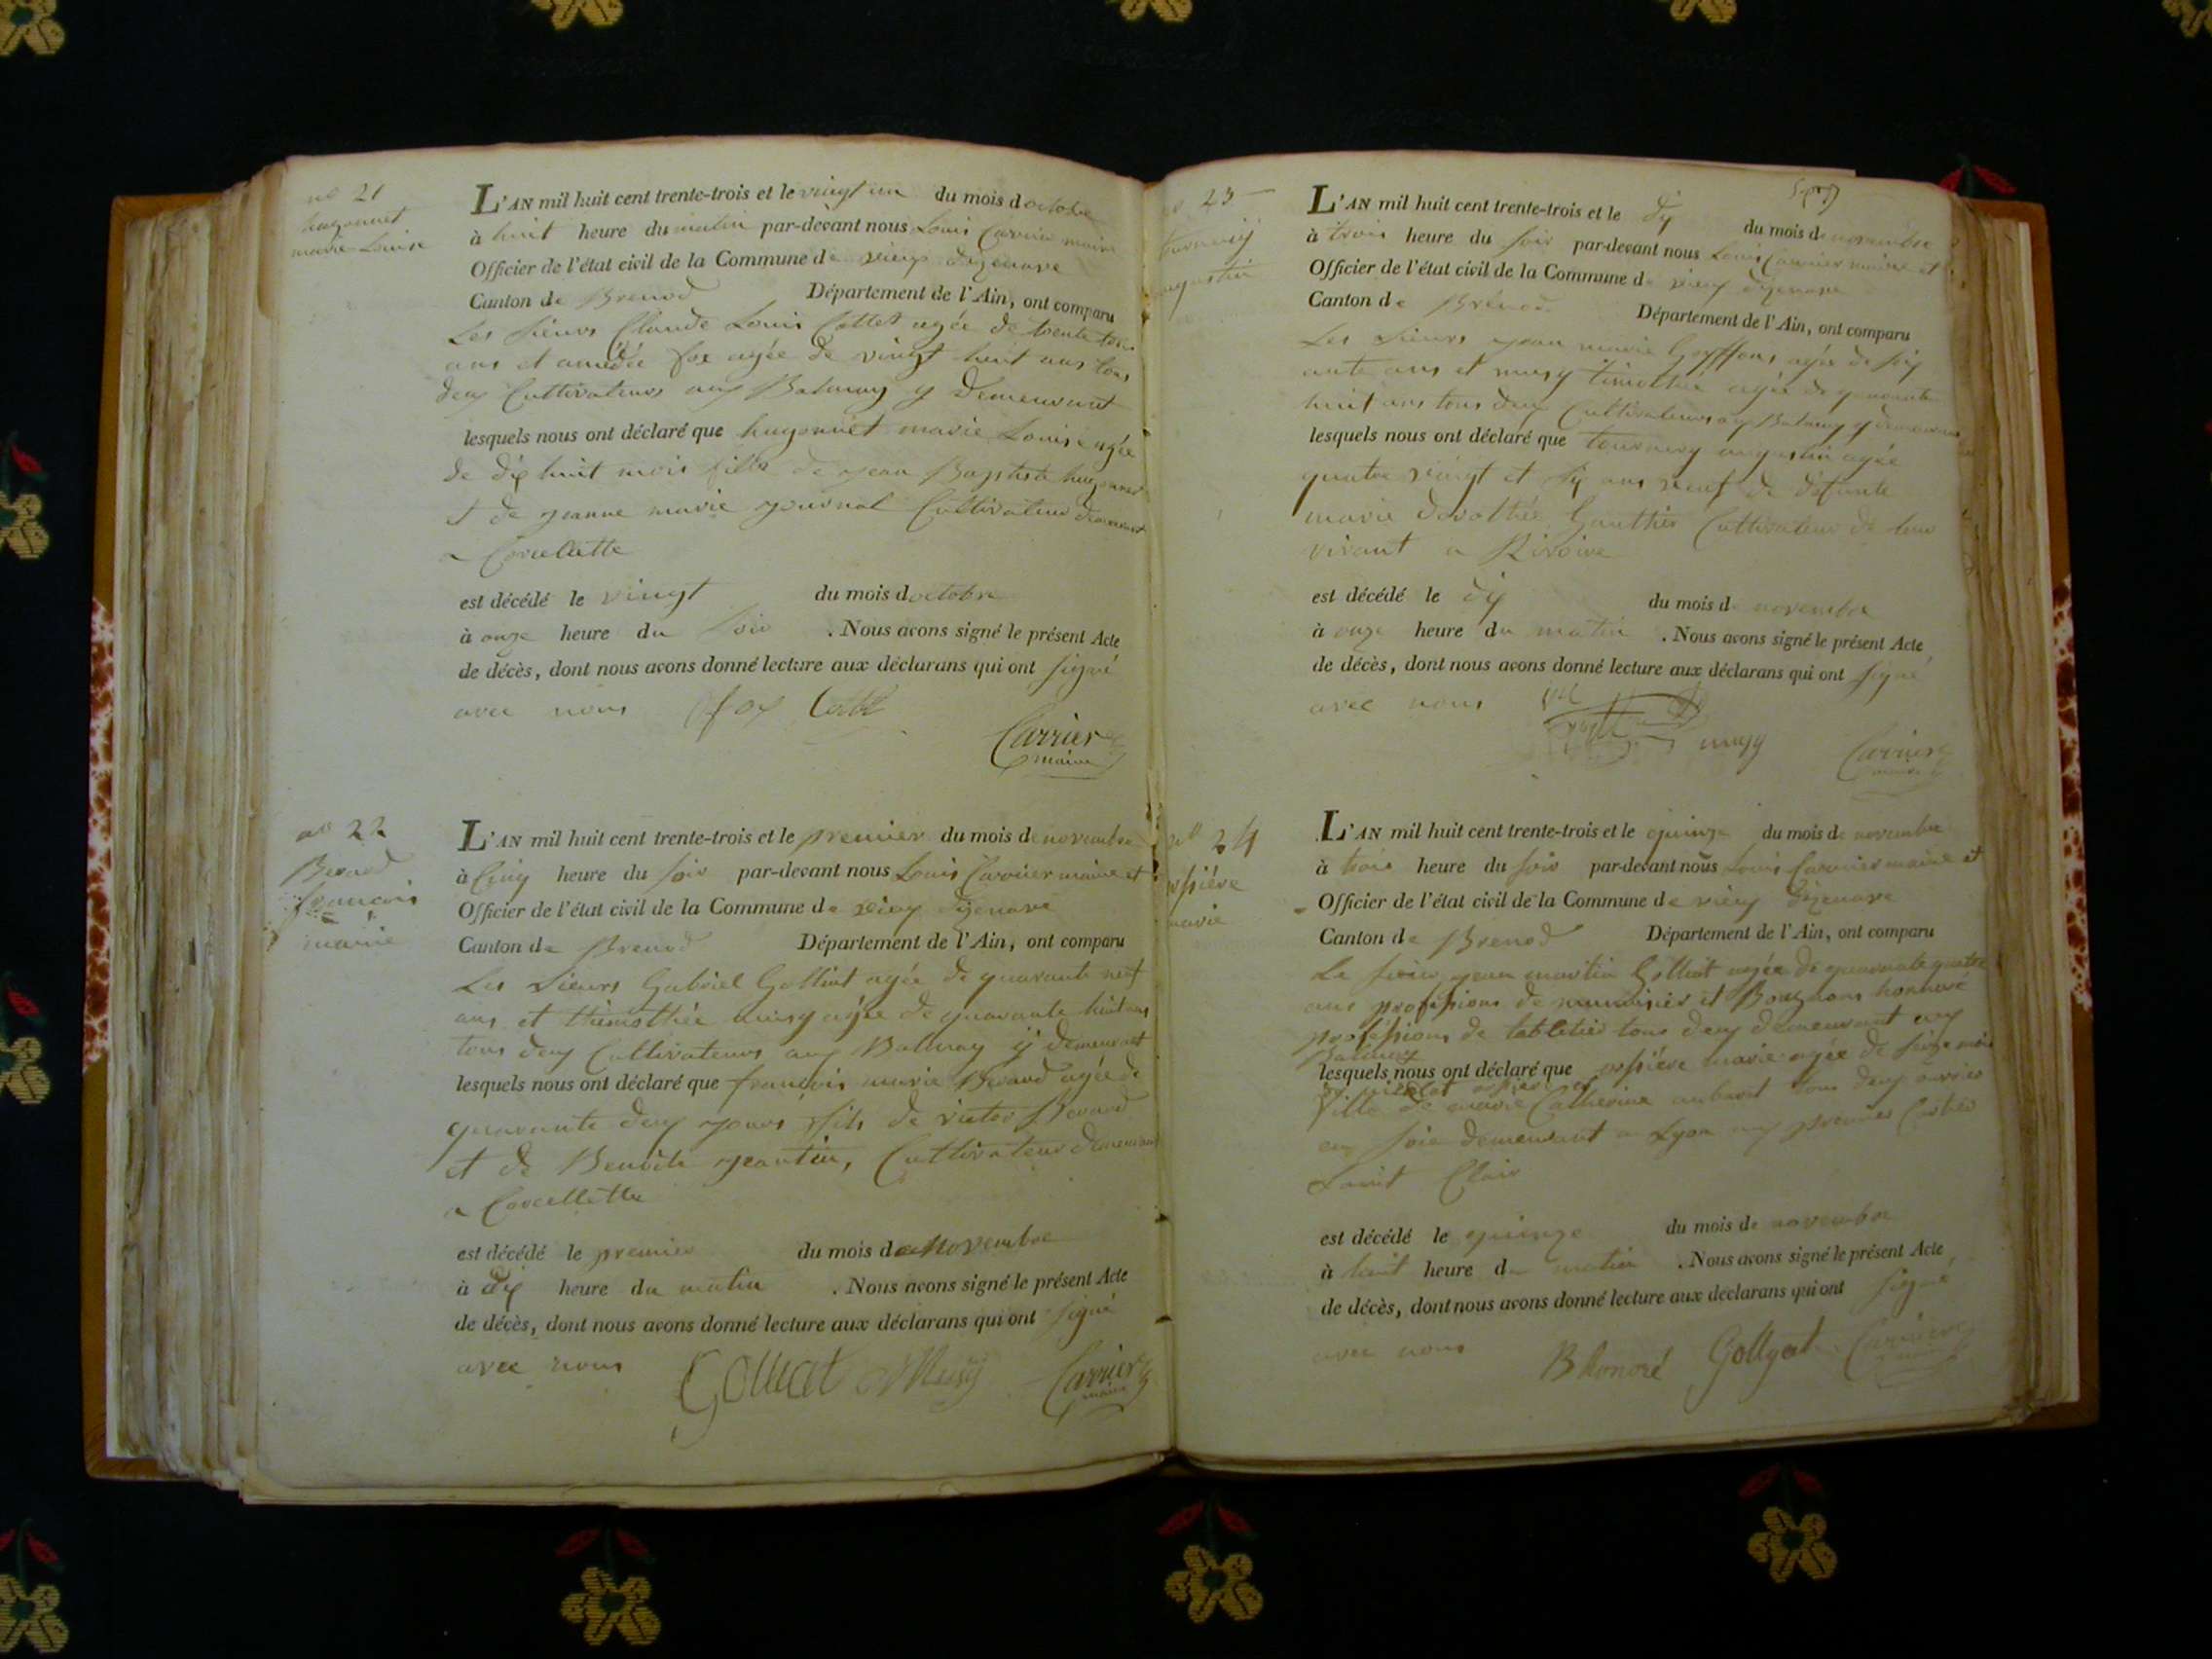 no 21
hugonnet
marie Louise
L'AN mil huit cent trente-trois et le vingt un du mois d octobre
à huit heure du matin par-devant nous Louis Carrier maire
Officier de l'état civil de la Commune de vieux dizenave
Canton de Brenod Département de l'Ain, ont comparu
Les sieurs Claude Louis Cottet agée de trente trois
ans et amédée fox agée de vingt huit ans tous
deux Cultivateurs aux Balmay y demeurant
lesquels nous ont déclaré que hugonnet marie Louise agée
de dix huit mois fille de jean Baptiste hugonnet
et de jeanne marie journal Cultivateur demeurant
a Corcelette
est décédé le vingt du mois d octobre
à onze heure du soir . Nous avons signé le présent Acte
de décès, dont nous avons donné lecture aux déclarans qui ont signé
avec nous fox Cottet
Carrier
maire
no 22
Berard
francois
marie
L'AN mil huit cent trente-trois et le premier du mois de novembre
à Cinq heure du soir par-devant nous Louis Carrier maire et
Officier de l'état civil de la Commune de vieux dizenave
Canton de Brenod Département de l'Ain, ont comparu
Les sieurs Gabriel Golliat agée de quarante neuf
ans et thimothée musy agée de quarante huit ans
tous deux Cultivateurs aux Balmay y demeurant
lesquels nous ont déclaré que françois marie Berard agée de
quarante deux jours fils de victor Berard
et de Benoite jeantin, Cultivateur demeurant
a Corcellette
est décédé le premier du mois de novembre
à dix heure du matin . Nous avons signé le présent Acte
de décès, dont nous avons donné lecture aux déclarans qui ont signé
avec nous Golliat Musy Carrier
maire
23
augustin
L'AN mil huit cent trente-trois et le dix du mois de novembre
à trois heure du soir par-devant nous Louis Carrier maire et
Officier de l'état civil de la Commune de vieux dizenave
Canton de Brenod Département de l'Ain, ont comparu
Les sieurs jean marie agée de soix
ante ans et musy timothée agée de quarante
huit ans tous deux Cultivateurs aux Balmay y demeurant
lesquels nous ont déclaré que augustin agée
quatre vingt et six ans veuf de défunte
marie dorothée Gauthier Cultivateur de leur
vivant a Rivoire
est décédé le dix du mois de novembre
à onze heure du matin . Nous avons signé le présent Acte
de décès, dont nous avons donné lecture aux déclarans qui ont signé
avec nous
musy Carrier
maire
no 24
orsière
marie
L'AN mil huit cent trente-trois et le quinze du mois de novembre
à trois heure du soir par-devant nous Louis Carrier maire et
Officier de l'état civil de la Commune de vieux dizenave
Canton de Brenod Département de l'Ain, ont comparu
Le sieur jean martin Golliat agée de quarante quatre
ans professions de menuisier et honnoré
professions de tabletier tous deux demeurant aux
Balmay
lesquels nous ont déclaré que orsière marie agée de seize mois
fille de marie Catherine tous deux ouvrier
en soie demeurant a Lyon
saint Clair
est décédé le quinze du mois de novembre
à huit heure du matin . Nous avons signé le présent Acte
de décès, dont nous avons donné lecture aux déclarans qui ont signé
avec nous B honoré Gollyat Carrier